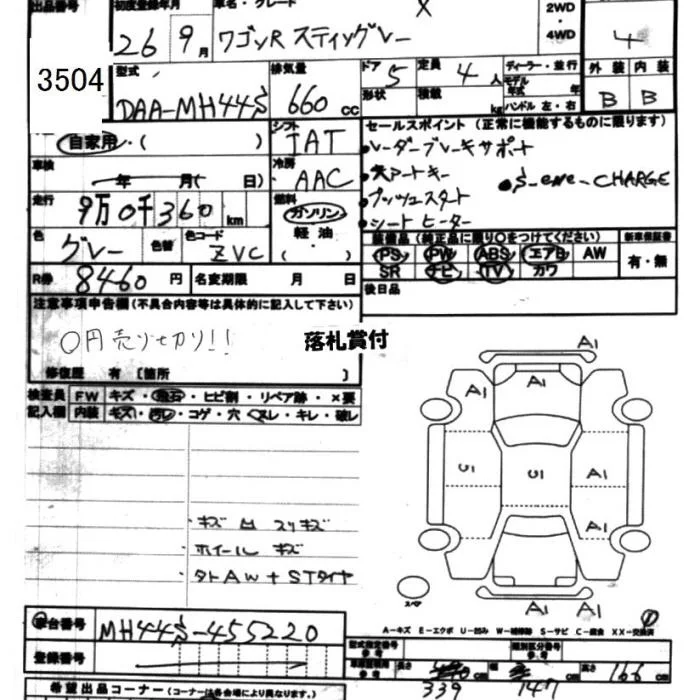 出品番号 初度登録年月 車名・グレード
26 9月 ワゴンR スティングレー X
2WD・4WD
4
3504
型式 DAA-MH44S
排気量 660 cc
ドア 5 定員 4 人
形状 積載 kg
ディーラー・並行
モデル年式 年式
ハンドル 左・右
外装 内装
B B
自家用・( )
シフト IAT
車検 年 月( 日)
冷房 AAC
走行 9万0千360 km
燃料 ガソリン・軽油・( )
色 グレー 色替 色コード ZVC
セールスポイント (正常に機能するものに限ります)
・レーダーブレーキサポート
・スマートキー
・プッシュスタート
・シートヒーター
・S-ene-CHARGE
装備品 (純正品に限り○をつけてください) 新車保証書
PS PW ABS エアB AW 有・無
SR ナビ TV カワ
後日品
R券 8460 円 名変期限 月 日
注意事項申告欄(不具合内容等は具体的に記入して下さい)
0円売り切り!!
落札賞付
修復歴 有 [箇所 ]
検査員記入欄
FW キズ・飛石・ヒビ割・リペア跡・×要
内装 キズ・汚レ・コゲ・穴・スレ・キレ・破レ
・キズ凹 スリキズ
・ホイール キズ
・タトAW+STタイヤ
A1
A1 A1
U1 U1 A1
A1
A1 A1
スペア
A-キズ E-エクボ U-凹み W-補修跡 S-サビ C-腐食 XX-交換済
車台番号 MH44S-455220
登録番号
型式指定番号 参考 類別区分番号 参考
長さ 339 cm 幅 147 cm 高さ 166 cm
希望出品コーナー (コーナーは各会場により異なります。)